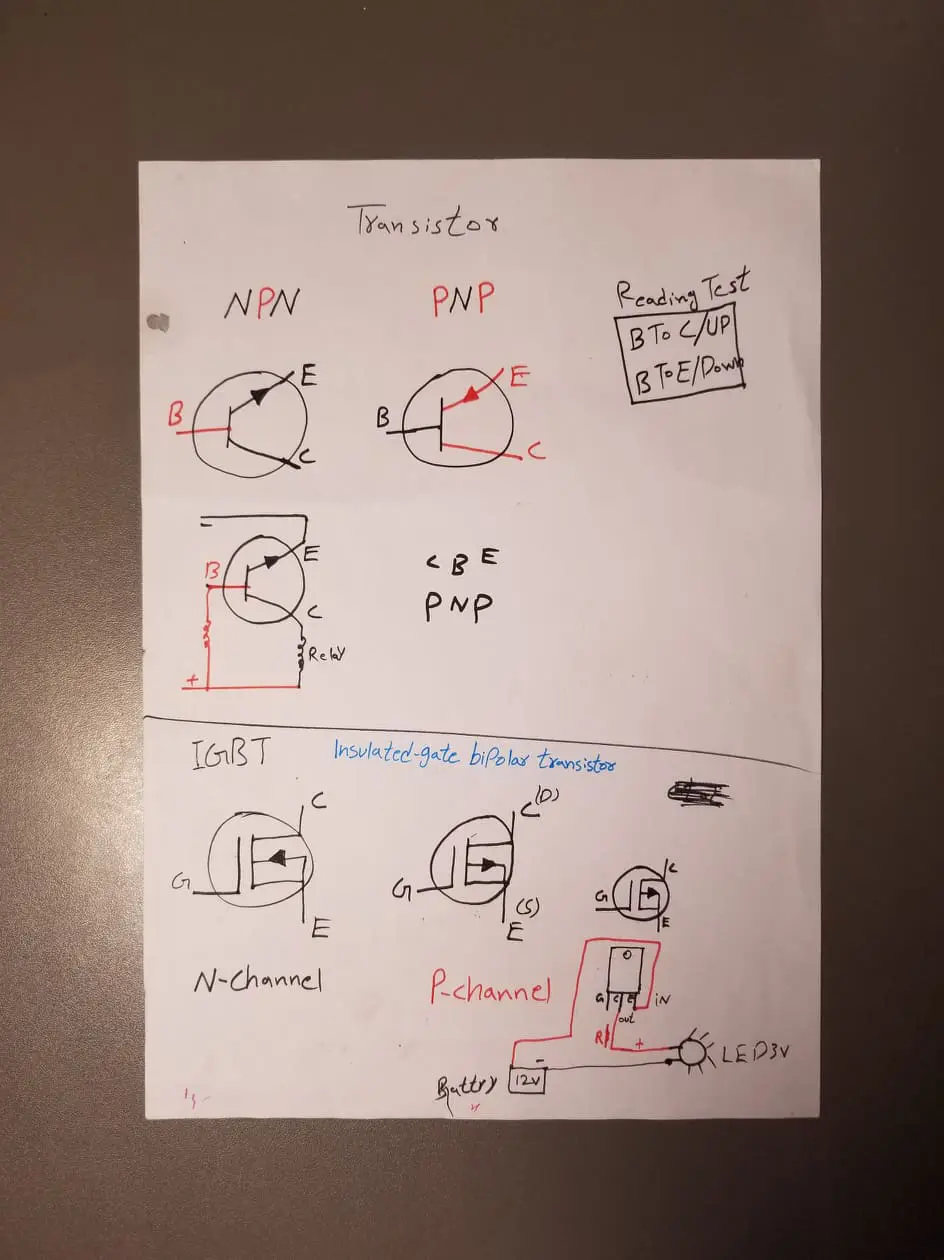 Transistor
NPN
PNP
Reading Test
B To C/UP
B To E/Down
E
B
C
E
B
C
E
B
C
Relay
+
C B E
PNP
IGBT
Insulated-gate bipolar transistor
C
G
E
N-Channel
C (D)
G
(S)
E
P-channel
C
G
E
G C E iN
out
R
+
-
LED3V
Battry
12V